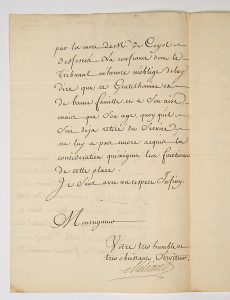 par la mort de M. de
La confiance dont le
Tribunal m'honore m'oblige de luy
dire que ce Gentilhomme est
de bonne famille et a son aise
mais que son age, quoy que
soit deja retiré du Service
ne luy a pas encore acquis la
considération qu'exigent les fonctions
de cette place.
Je suis avec un respect infiny,
Monseigneur
Votre tres humble et
tres obeissant Serviteur